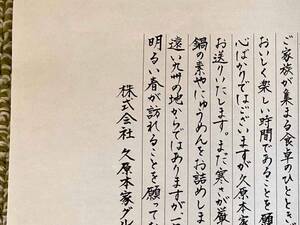 ご家族が集まる食卓のひととき
おいしく楽しい時間であることを願
心ばかりではございますが久原本家
お送りいたします。まだ寒さが厳
鍋の素やにゅうめんをお詰めしま
遠い九州の地からではありますが、一
明るい春が訪れることを願ってな
株式会社 久原本家グル